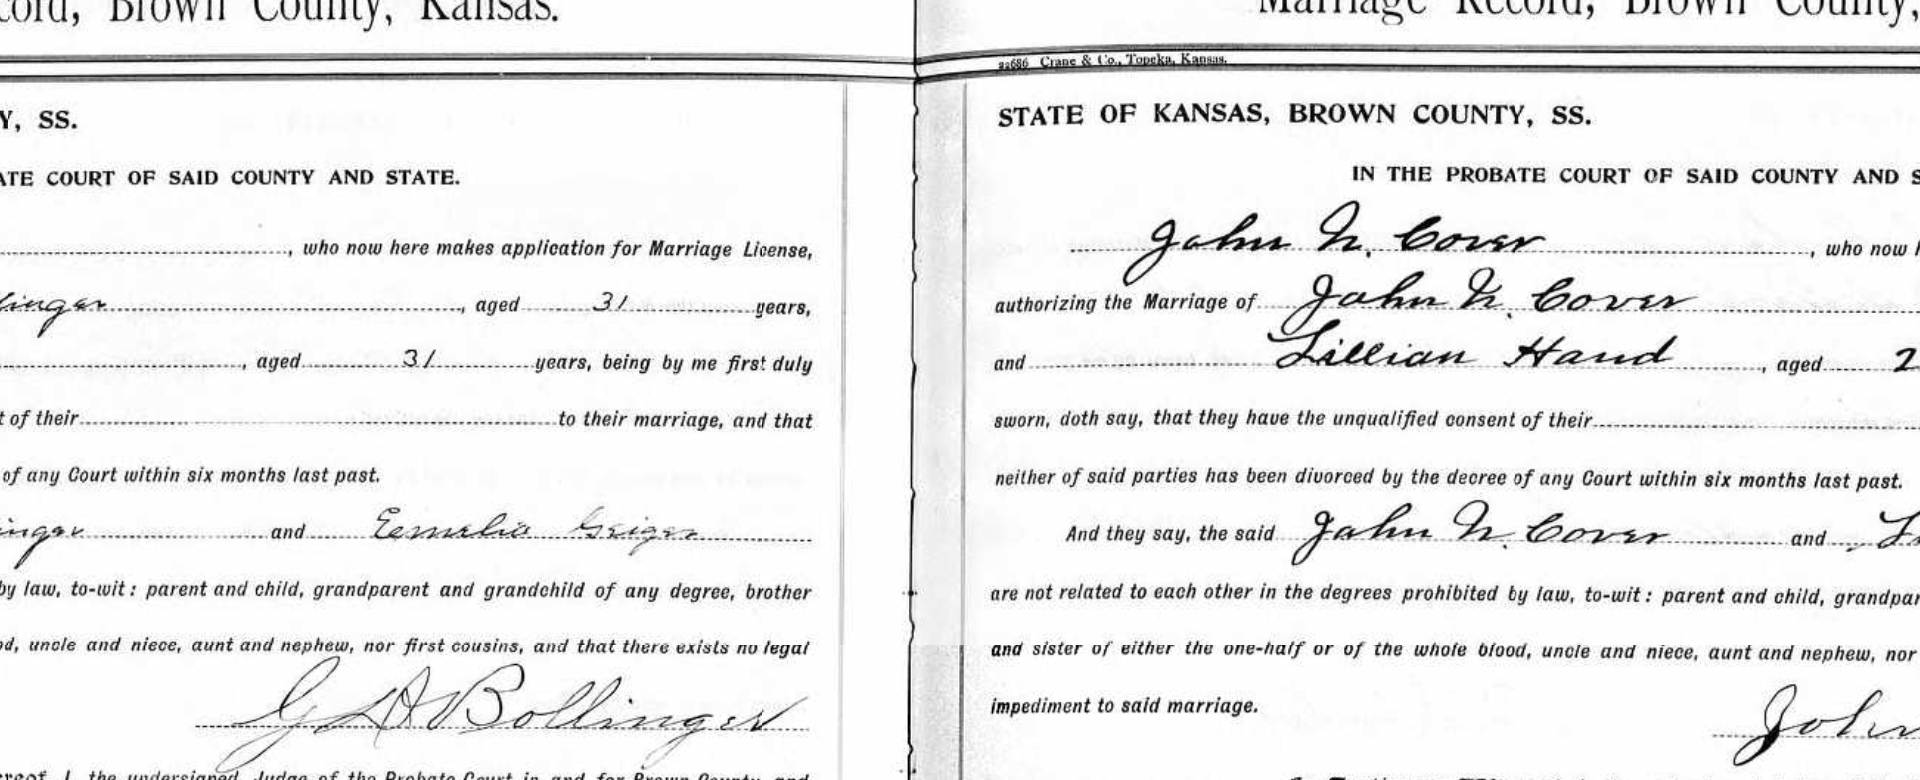 cord, Brown County, Kansas.
Y, SS.
ATE COURT OF SAID COUNTY AND STATE.
, who now here makes application for Marriage License,
linger, aged 31 years,
, aged 31 years, being by me first duly
t of their to their marriage, and that
of any Court within six months last past.
inger and Eemelia Geiger
by law, to-wit: parent and child, grandparent and grandchild of any degree, brother
od, uncle and niece, aunt and nephew, nor first cousins, and that there exists no legal
G L A Bollinger
ereof, I, the undersigned, Judge of the Probate Court in and for Brown County and
Marriage Record, Brown County,
22686 Crane & Co., Topeka, Kansas.
STATE OF KANSAS, BROWN COUNTY, SS.
IN THE PROBATE COURT OF SAID COUNTY AND S
John N. Cover, who now h
authorizing the Marriage of John N. Cover
and Lillian Hand, aged 2
sworn, doth say, that they have the unqualified consent of their
neither of said parties has been divorced by the decree of any Court within six months last past.
And they say, the said John N. Cover and L
are not related to each other in the degrees prohibited by law, to-wit: parent and child, grandpar
and sister of either the one-half or of the whole blood, uncle and niece, aunt and nephew, nor
impediment to said marriage.
John